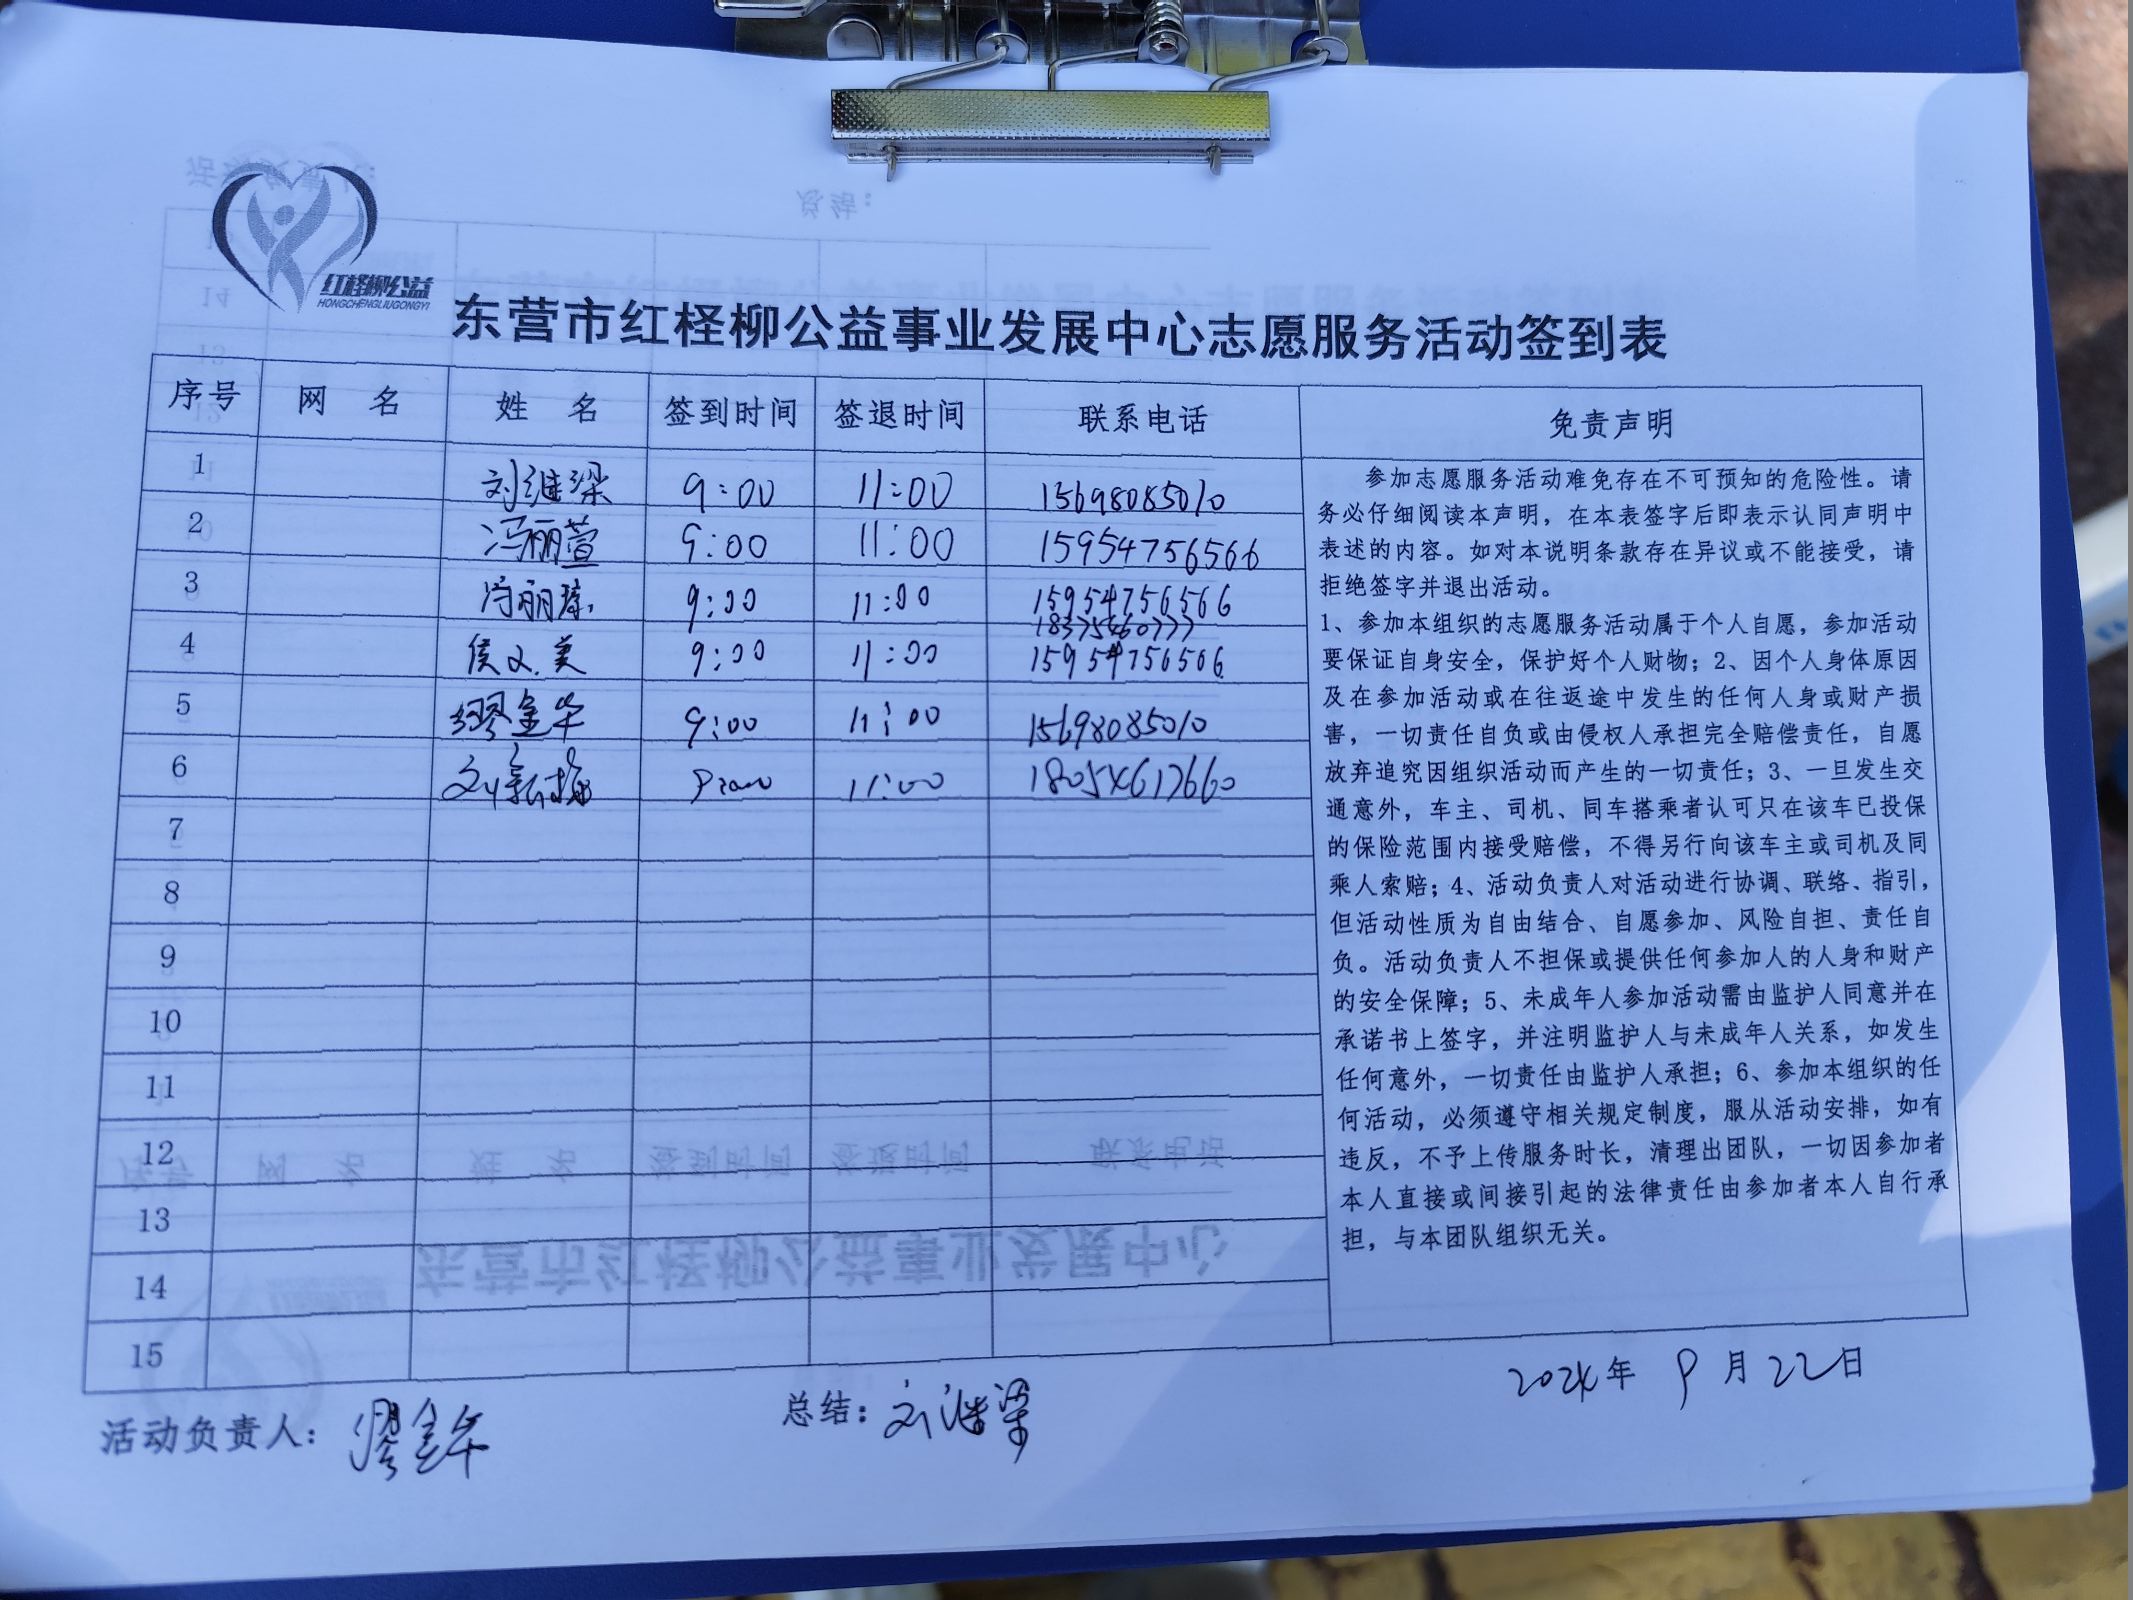 红柽柳公益
HONGCHENGLIUGONGYI
东营市红柽柳公益事业发展中心志愿服务活动签到表
序号 网 名 姓 名 签到时间 签退时间 联系电话 免责声明
1 刘继梁 9:00 11:00 15698085010
2 冯丽萱 9:00 11:00 15954756566
3 冯丽 9:00 11:00 15954756566
18375460777
4 侯文美 9:00 11:00 15954756566
5 缪金华 9:00 11:00 15698085010
6 刘 11:00 18054617660
7
8
9
10
11
12
13
14
15
参加志愿服务活动难免存在不可预知的危险性。请
务必仔细阅读本声明，在本表签字后即表示认同声明中
表述的内容。如对本说明条款存在异议或不能接受，请
拒绝签字并退出活动。
1、参加本组织的志愿服务活动属于个人自愿，参加活动
要保证自身安全，保护好个人财物；2、因个人身体原因
及在参加活动或在往返途中发生的任何人身或财产损
害，一切责任自负或由侵权人承担完全赔偿责任，自愿
放弃追究因组织活动而产生的一切责任；3、一旦发生交
通意外，车主、司机、同车搭乘者认可只在该车已投保
的保险范围内接受赔偿，不得另行向该车主或司机及同
乘人索赔；4、活动负责人对活动进行协调、联络、指引，
但活动性质为自由结合、自愿参加、风险自担、责任自
负。活动负责人不担保或提供任何参加人的人身和财产
的安全保障；5、未成年人参加活动需由监护人同意并在
承诺书上签字，并注明监护人与未成年人关系，如发生
任何意外，一切责任由监护人承担；6、参加本组织的任
何活动，必须遵守相关规定制度，服从活动安排，如有
违反，不予上传服务时长，清理出团队，一切因参加者
本人直接或间接引起的法律责任由参加者本人自行承
担，与本团队组织无关。
2024年 9月22日
活动负责人：缪金华 总结：刘继梁